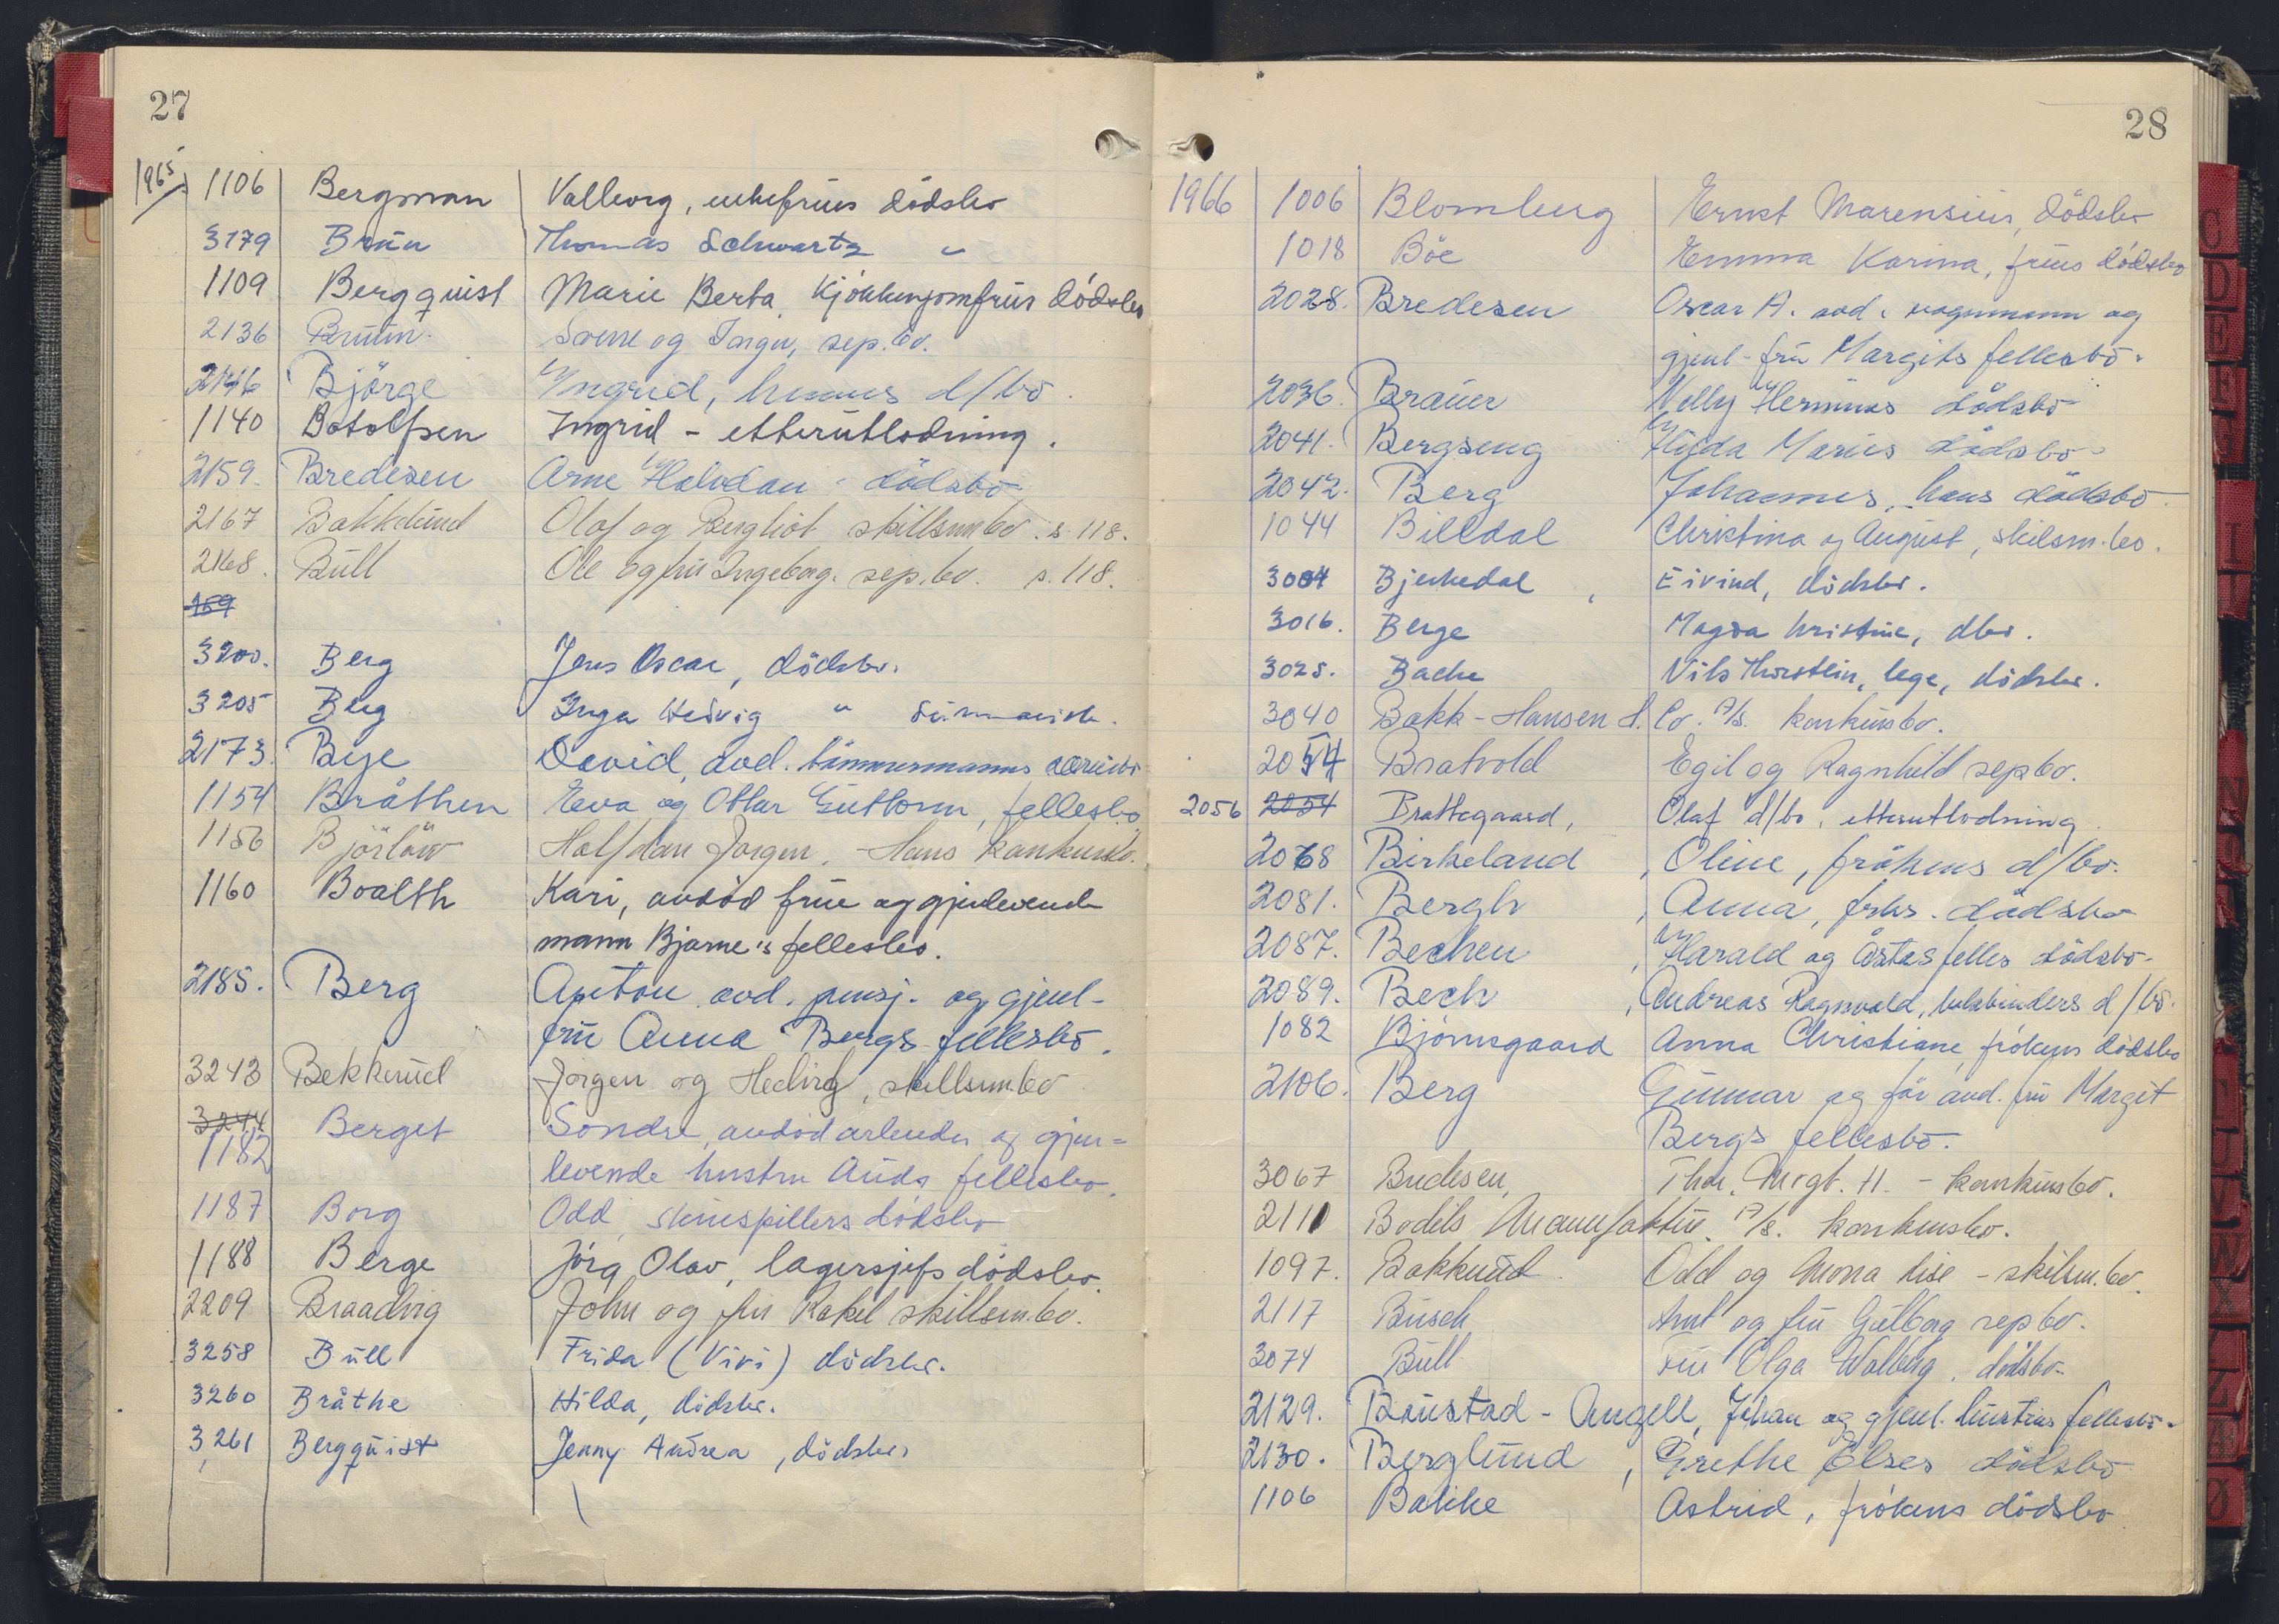 27
1965 1106 Bergman Valborg, enkefrus dödsbo
3179 Brun Thomas Schwartz "
1109 Bergquist Marie Berta, Kjökkenjomfrus dödsbo
2136 Bruun. Sverre og Inger, sep.bo.
2146 Björge Ingrid, hennes d/bo.
1140 Botolfsen Ingrid - etterutlodning.
2159. Bredesen Arne Halvdan dödsbo
2167 Bakkelund Olaf og Bergliot skillsm.bo s. 118.
2168. Bull Ole og fru Ingeborg. sep.bo. s. 118.
169
3200. Berg Jens Oscar, dödsbo.
3205 Berg Inga Hedvig "
2173. Bye David, avd. tömmermanns
1154 Bråthen Eva og Ottar Guttorm, fellesbo
1156 Björlöw Halfdan Jörgen. - Hans konkursbo.
1160 Boalth Kari, avdöd frue og gjenlevende
mann Bjarne's fellesbo.
2185. Berg Anton avd. pensj. og gjenl-
fru Anna Bergs fellesbo.
3243 Bekkerud Jörgen og Hedvig, skillsm.bo
3244
1182 Berget Söndre, avdöd arbeider og gjen=
levende hustru Auds fellesbo.
1187 Borg Odd, skuespillers dödsbo
1188 Berge Jörg Olav, lagersjefs dödsbo.
2209 Braadvig John og fru Rakel skillsm.bo.
3258 Bull Frida (Vivi) dödsbo.
3260 Bråthe Hilda, dödsbo.
3261 Bergquist Jenny Andrea, dödsbo
28
1966 1006 Blomberg Ernst Marensius, dödsbo
1018 Böe Emma Karina, frues dödsbo
2028. Bredesen Oscar A. avd. vognmann og
gjenl. fru Margits fellesbo.
2036. Brauer Nelly Herminas dödsbo
2041. Bergseng Hilda Maries dödsbo
2042. Berg Johannes, hans dödsbo
1044 Billdal Christina og August, skilsm.bo.
3004 Bjerkedal, Eivind, dödsbo.
3016. Berge Magda Kristine, dbo.
3025. Bache Nils Thorstein, lege, dödsbo.
3040 Bakk-Hansen & Co. A/S. konkursbo.
2054 Bratvold Egil og Ragnhild sepbo.
2056 2054 Brattegaard, Olaf d/bo, etterutlodning
2068 Birkeland, Oline, frökens d/bo.
2081. Bergh, Anna, frks. dödsbo
2087. Bechen, Harald og Åstas felles dödsbo
2089. Bech, Andreas Ragnvald, bokbinders d/bo.
1082 Björnsgaard Anna Christiane, frökens dödsbo
2106. Berg Gunnar og för avd. fru Margit
Bergs fellesbo.
3067 Budesen, Thor, Margt. H. - konkursbo.
2111 Bodels Manufaktur A/S. konkursbo.
1097. Bakkerud Odd og Mona Lise - skilsm.bo.
2117 Busch Arnt og fru Gulborg sepbo.
3074 Bull fru Olga Walborg, dödsbo
2129. Baustad - Angell, Johan og gjenl. hustrus fellesbo.
2130. Berglund, Grethe Elses dödsbo
1106 Bakke Astrid, frökens dödsbo
C
D
E
F
H
I
N
U
V
W
X
Z
Æ
Ø